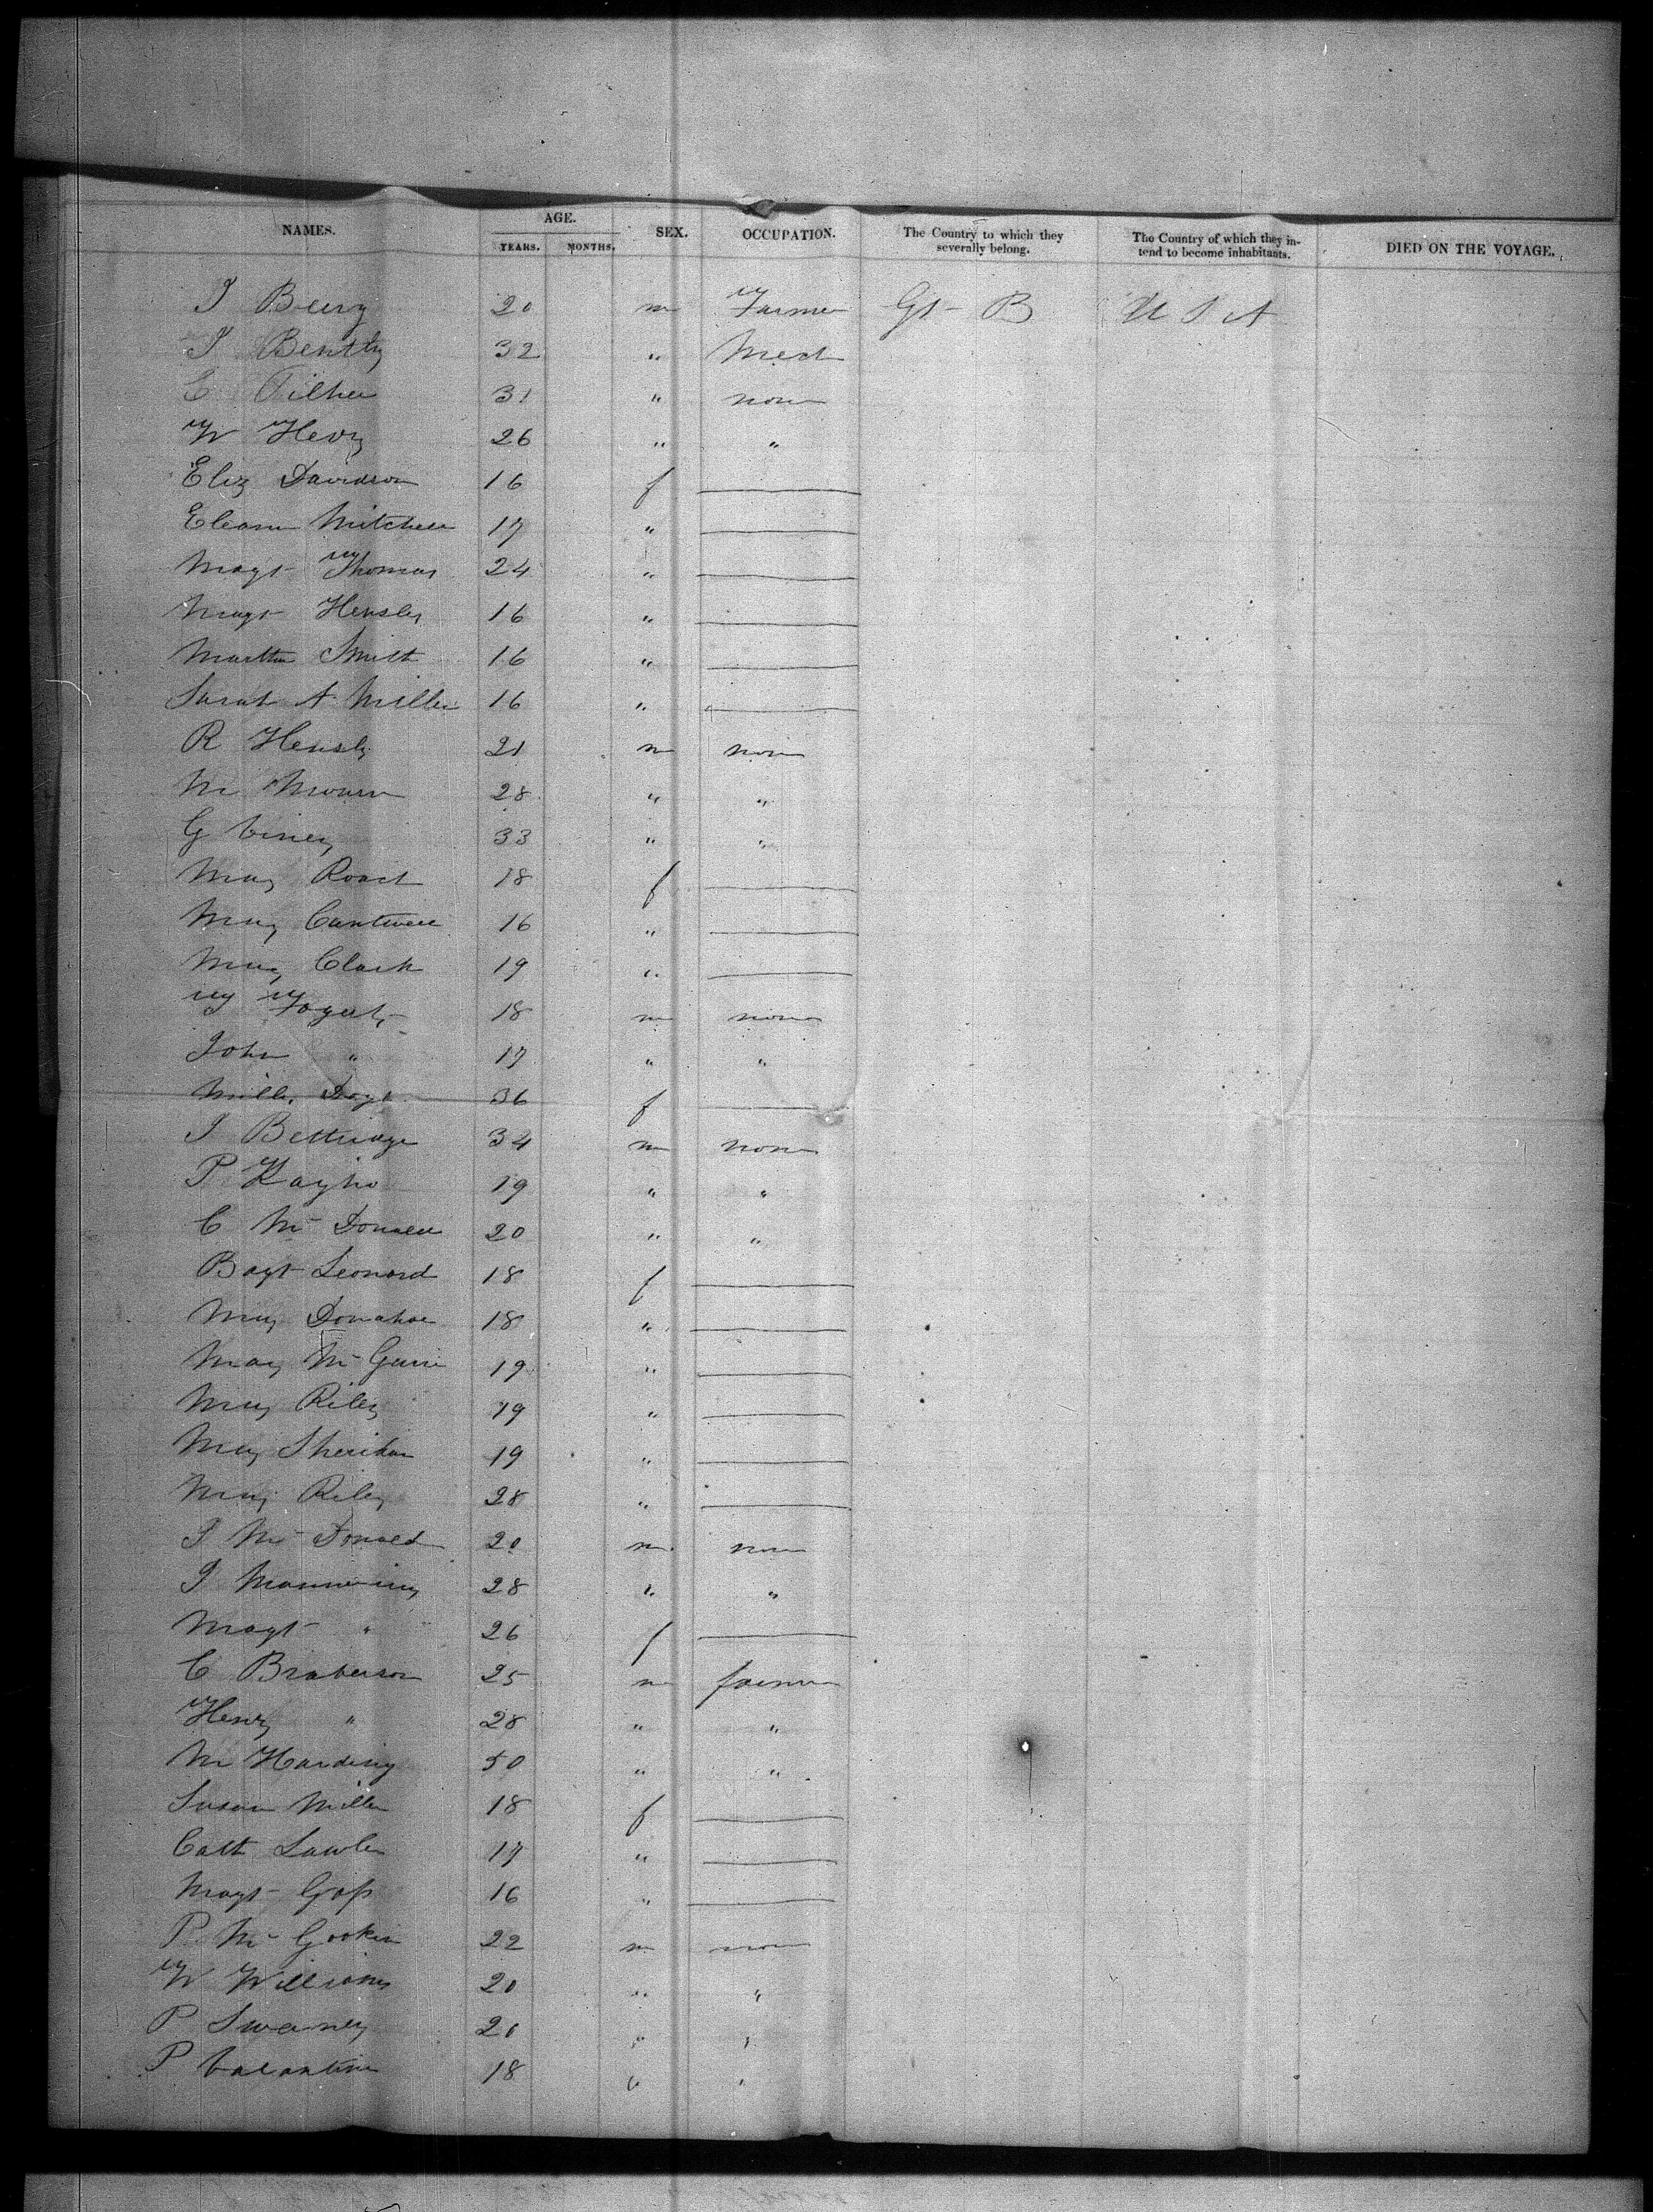 NAMES. AGE. YEARS. MONTHS. SEX. OCCUPATION. The Country to which they severally belong. The Country of which they intend to become inhabitants. DIED ON THE VOYAGE.
J 20 m Farmer Gt B U S A
J Bently 32 " Mech
C 31 " none
W Henry 26 " "
Eliz Davidson 16 f
Eleanor Mitchell 17 "
Magt Thomas 24 "
Magt Hensley 16 "
Martha Smith 16 "
Sarah A Miller 16 "
R Hensly 21 m none
M 28 " "
G Viney 33 " "
Mary Roach 18 f
Mary Cantwell 16 "
Mary Clark 19 "
T Fogarty 18 m none
John " 17 " "
36 f
J Bettridge 34 m none
P 19 " "
C Mc Donald 20 " "
Bagt Leonard 18 f
Mary Donahoe 18 "
Mary Mc 19 "
Mary Riley 19 "
Mary Sheridan 19 "
Mary Riley 28 "
J Mc Donald 20 m none
J Mannering 28 " "
Magt " 26 f
C Braberson 25 m farmer
Henry " 28 " "
M Harding 50 " "
Susan Miller 18 f
Cath Lawler 17 "
Magt Goss 16 "
P Mc Gookin 22 m none
W Williams 20 " "
P Swaney 20 " "
P Valantine 18 " "